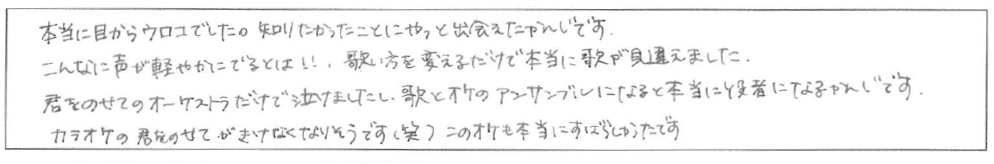 本当に目からウロコでした。知りたかったことにやっと出会えたかんじです.
こんなに声が軽やかにでるとは!!、歌い方を変えるだけで本当に歌が見違えました.
君をのせてのオーケストラだけで泣けましたし、歌とオケのアンサンブルになると本当に役者になるかんじです.
カラオケの君をのせてがきけなくなりそうです(笑) このオケも本当にすばらしかったです